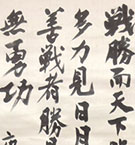 戦勝而天下
多力見日月
善戦者勝
無勇功